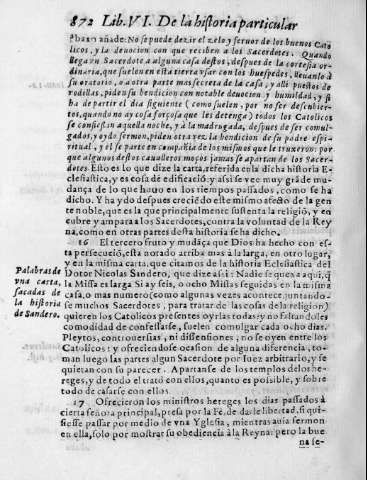 872 Lib. VI. De la historia particular
abaxo añade: No se puede dezir el zelo, y feruor de los buenos Cato
licos, y la deuocion con que reciben a los Sacerdotes. Quando
llega vn Sacerdote a alguna casa destos, despues de la cortesia or-
dinaria, que suelen en esta tierra vsar con los huespedes, lleuanlo a
su oratorio, o a otra parte mas secreta de la casa, y alli puestos de
rodillas, piden su bendicion con notable deuocion y humildad, y si
ha de partir el dia siguiente (como suelen, por no ser descubier-
tos, quando no ay cosa forçosa que les detenga) todos los Catolicos
se confiessan aquella noche, y a la madrugada, despues de ser comul-
gados, y oydo sermon, piden otra vez la bendicion de su padre espi-
ritual, y el se parte en compañia de los mismos que le truxeron: por
que algunos destos caualleros moços jamas se apartan de los Sacer-
dotes. Esto es lo que dize la carta, referida en la dicha historia E-
clesiastica, y es cosa de edificació y assi se vee muy gráde mu-
dança de lo que huuo en los tiempos passados, como se ha
dicho. Y ha ydo despues crecido este mismo afecto de la gen
te noble, que es la que principalmente sustenta la religió, y en
cubre y ampara a los Sacerdotes, contra la voluntad de la Rey
na, como en otras partes desta historia se ha dicho.
16 El tercero fruto y mudáça que Dios ha hecho con es-
ta persecució, està notado arriba mas a la larga, en otro lugar,
y en la misma carta, que citamos de la historia Eclesiastica del
Dotor Nicolas Sandero, que dize assi: Nadie se quexa aqui, q̃
la Missa es larga Si ay seis, o ocho Missas seguidas en la misma
casa, o mas numero (como algunas vezes acontece, juntando-
se muchos Sacerdotes, para tratar de las cosas de la religion)
quieren los Catolicos presentes oyrlas todas: y no faltandoles
comodidad de confessarse, suelen comulgar cada ocho dias.
Pleytos, controuersias, ni dissensiones, no se oyen entre los
Catolicos: y ofreciendose ocasion de alguna diferencia, to-
man luego las partes algun Sacerdote por juez arbitrario, y se
quietan con su parecer. Apartanse de los templos de los here-
reges, y de todo el trato con ellos, quanto es possible, y sobre
todo de casarse con ellos.
Palabras de
vna carta,
sacadas de
la historia
de Sandero.
17 Ofrecieron los ministros hereges los dias passados à
cierta señora principal, presa por la Fè, de darle libertad, si qui-
siesse passar por medio de vna Yglesia, mientras auia sermon
en ella, solo por mostrar su obediencia à la Reyna: pero la bue
na se-